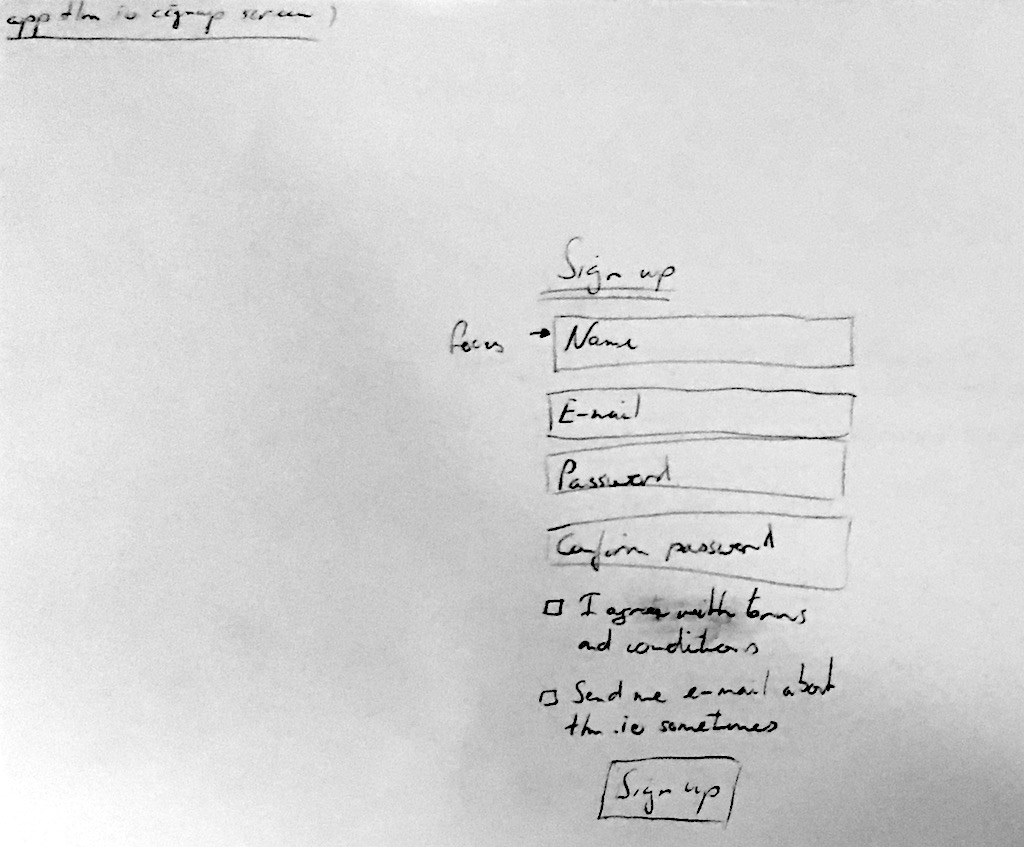 app thn io signup screen)
Sign up
focus → Name
E-mail
Password
Confirm password
I agree with terms
and conditions
Send me e-mail about
thn.io sometimes
Sign up